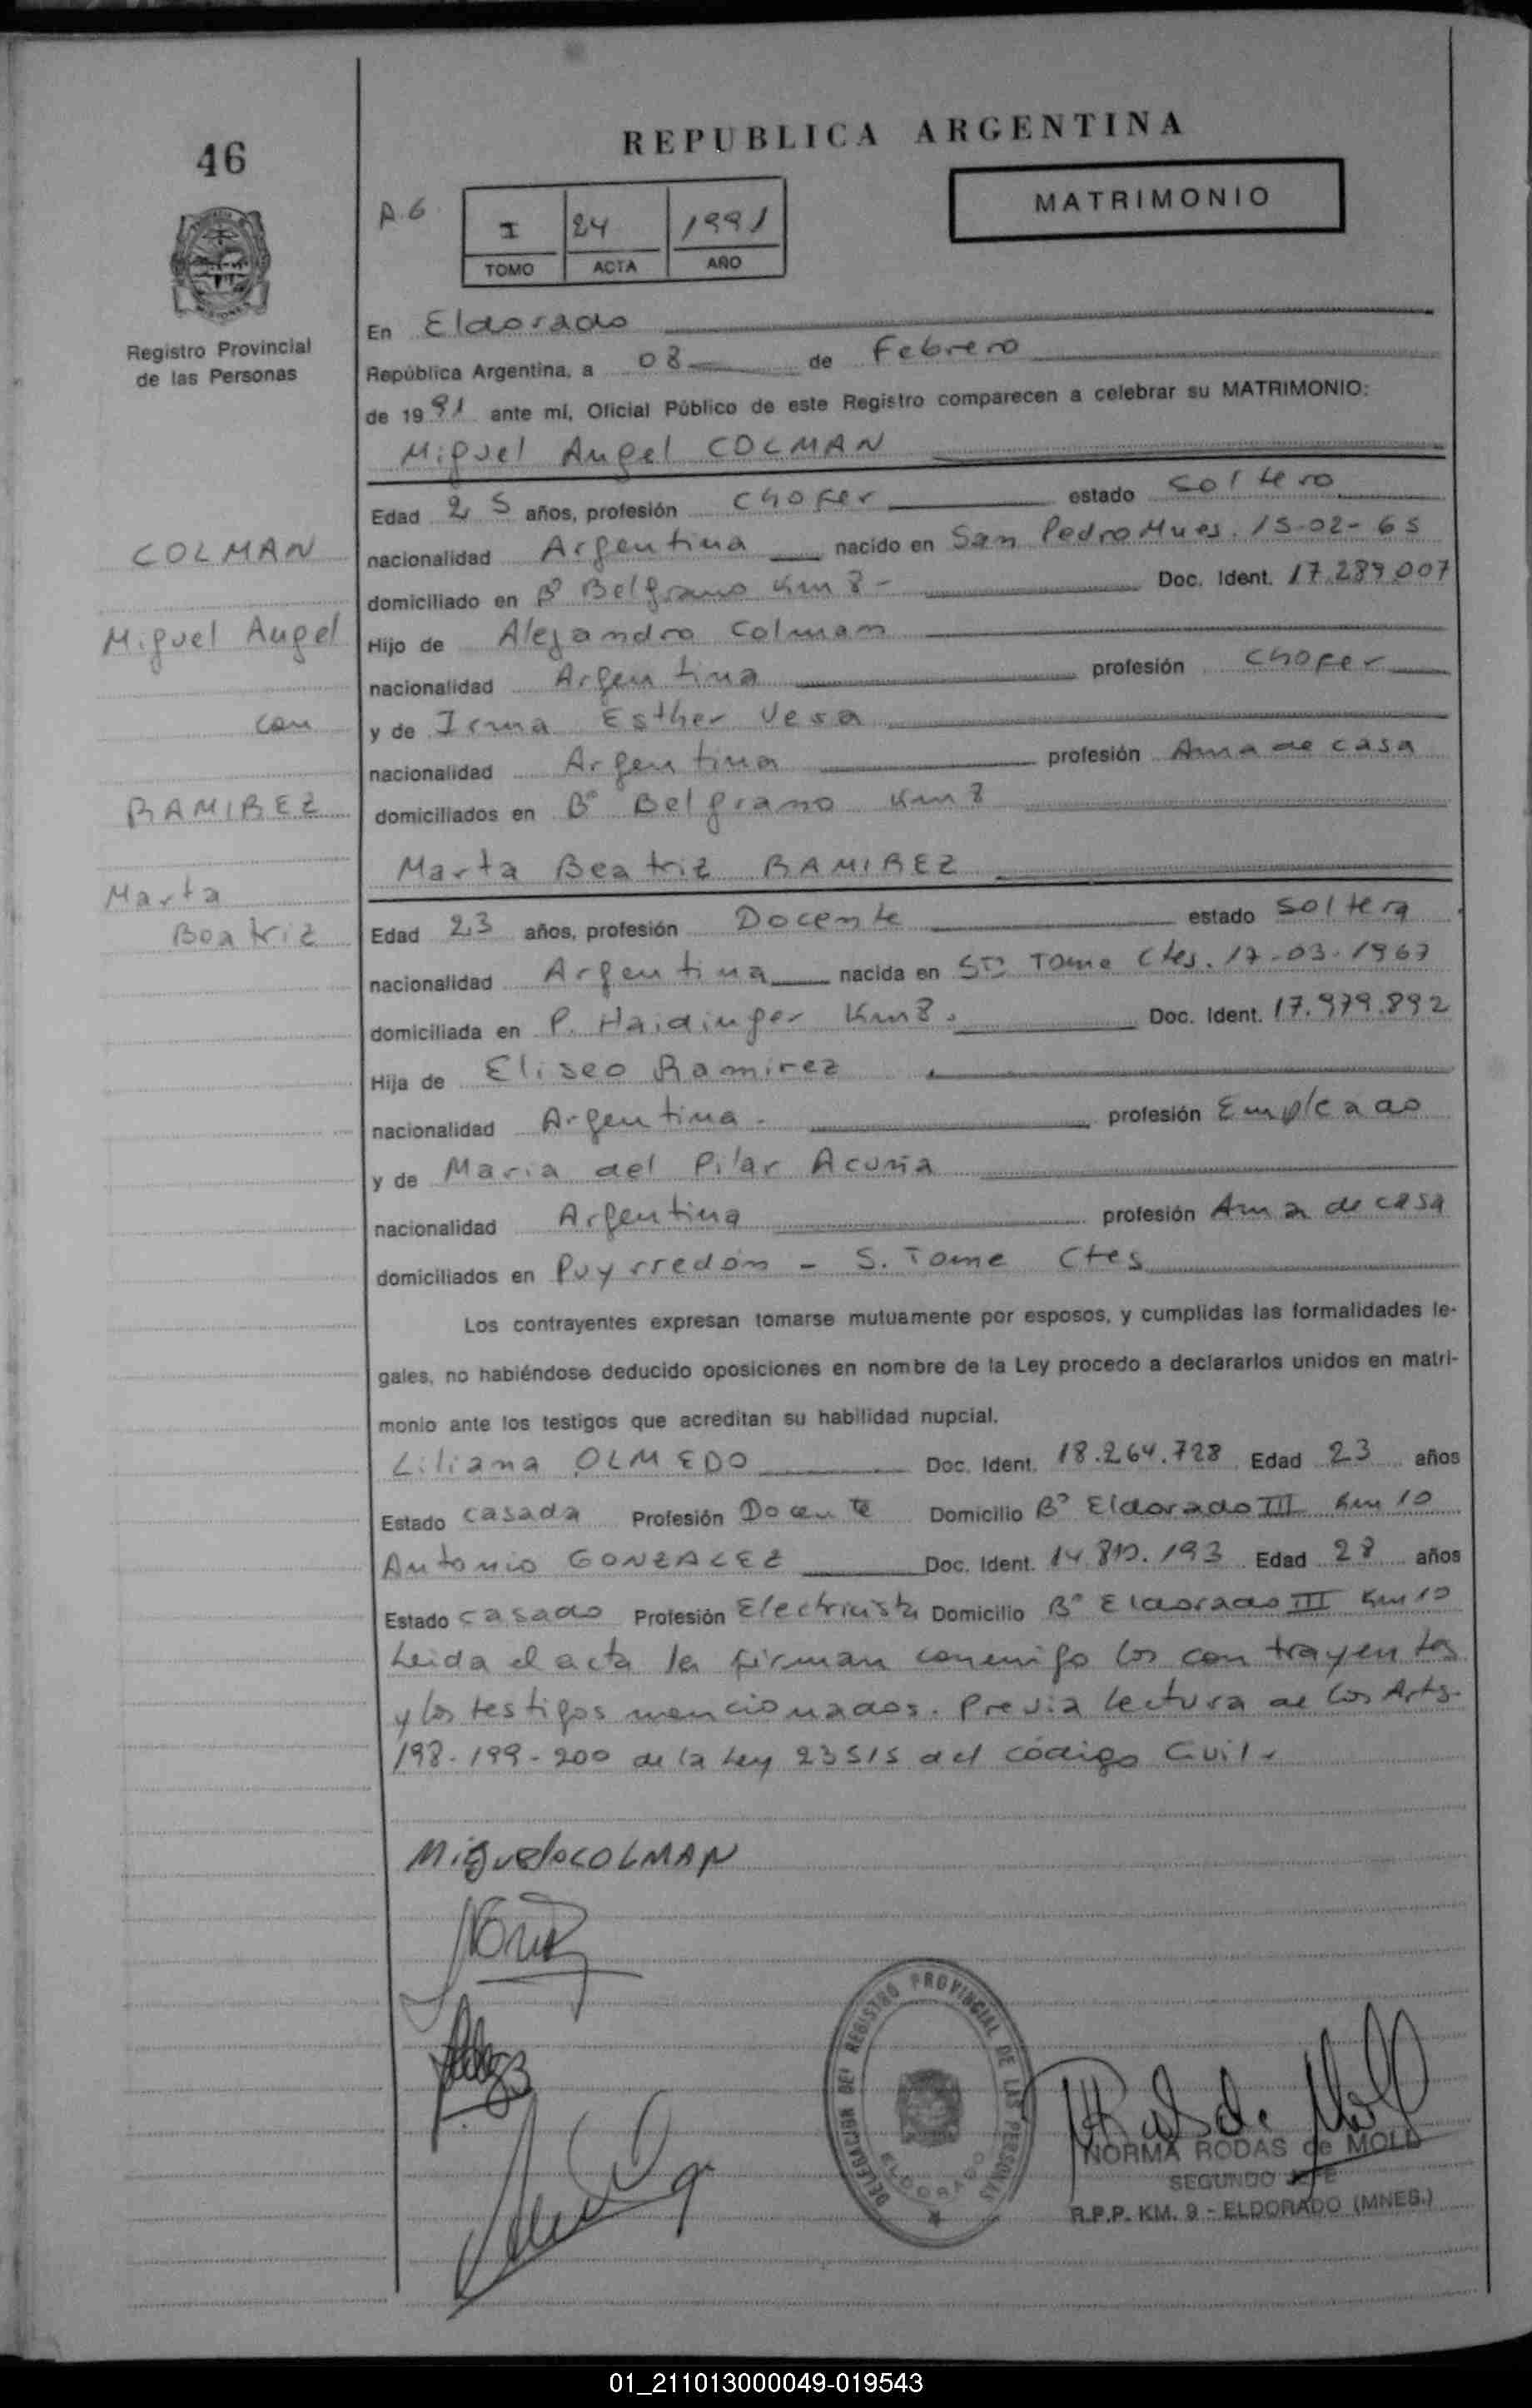 46
REPUBLICA ARGENTINA
MATRIMONIO
A.6
I 24 1991
TOMO ACTA AÑO
Registro Provincial
de las Personas
En Eldorado
República Argentina, a 08 de Febrero
de 1991 ante mí, Oficial Público de este Registro comparecen a celebrar su MATRIMONIO:
Miguel Angel COLMAN
Edad 25 años, profesión chofer estado soltero
COLMAN
nacionalidad Argentina nacido en San Pedro Mnes. 15-02-65
domiciliado en Bº Belgrano Km 8 - Doc. Ident. 17.289.007
Miguel Angel
Hijo de Alejandro Colman
nacionalidad Argentina profesión chofer
con
y de Irma Esther Vera
nacionalidad Argentina profesión Ama de casa
RAMIREZ
domiciliados en Bº Belgrano Km 8
Marta Beatriz RAMIREZ
Marta
Beatriz
Edad 23 años, profesión Docente estado soltera
nacionalidad Argentina nacida en Sto Tome Ctes. 17-03-1967
domiciliada en P. Haidinger Km 8. Doc. Ident. 17.979.892
Hija de Eliseo Ramirez
nacionalidad Argentina. profesión Empleado
y de Maria del Pilar Acuña
nacionalidad Argentina profesión Ama de casa
domiciliados en Puyrredón - S. Tome Ctes
Los contrayentes expresan tomarse mutuamente por esposos, y cumplidas las formalidades le-
gales, no habiéndose deducido oposiciones en nombre de la Ley procedo a declararlos unidos en matri-
monio ante los testigos que acreditan su habilidad nupcial.
Liliana OLMEDO Doc. Ident. 18.264.728 Edad 23 años
Estado casada Profesión Docente Domicilio Bº Eldorado III Km 10
Antonio GONZALEZ Doc. Ident. Edad 28 años
Estado casado Profesión Electricista Domicilio Bº Eldorado III Km 10
Leida el acta la firman conmigo los contrayentes
y los testigos mencionados. Previa lectura de los Arts.
198-199-200 de la Ley 23515 del código Civil.
Miguel COLMAN
DELEGACION DEL REGISTRO PROVINCIAL DE LAS PERSONAS
ELDORADO
NORMA RODAS de MOLL
SEGUNDO JEFE
R.P.P. KM. 9 - ELDORADO (MNES.)
01_211013000049-019543